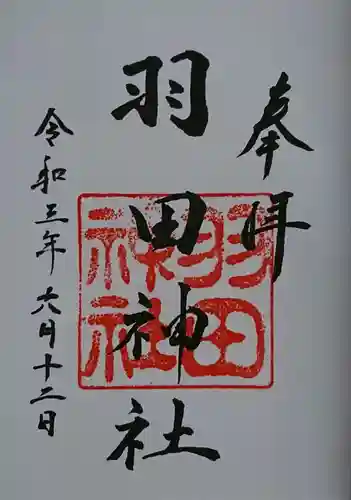 奉拝
羽田神社
羽田
神社
令和三年六月十二日